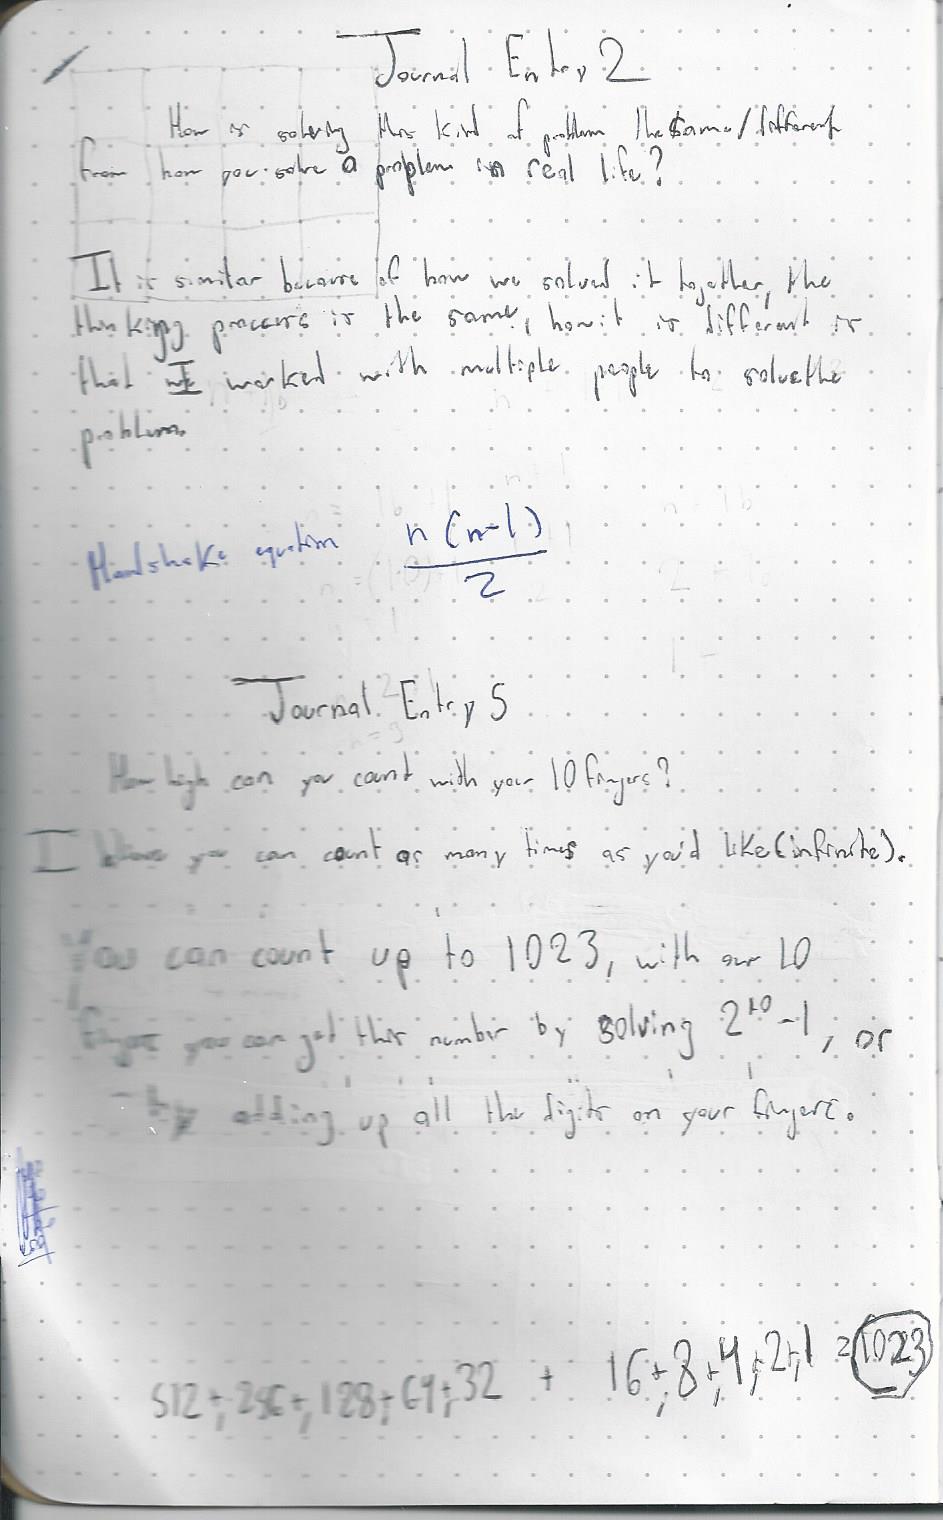 Journal Entry 2
How is solving this kind of problem the same/different
from how you solve a problem in real life?
It is similar because of how we solved it together, the
thinking process is the same, how it is different is
that I worked with multiple people to solve the
problem.
Handshake equation n(n-1)
2
Journal Entry 5
How high can you count with your 10 fingers?
I believe you can count as many times as you'd like (infinite).
You can count up to 1023, with our 10
fingers you can get this number by solving 2^10 - 1, or
by adding up all the digits on your fingers.
512+,256+,128+,64+,32 + 16+,8+,4+,2+,1 = 1023